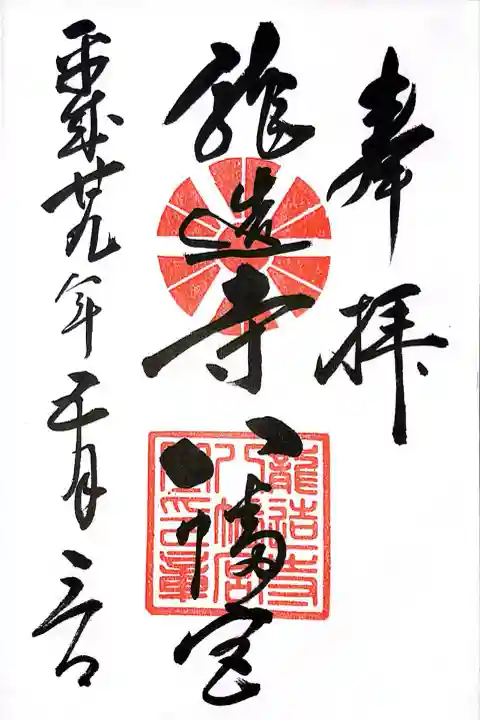 奉拝
龍造寺八幡宮
平成廿九年五月三日
龍造寺
八幡宮